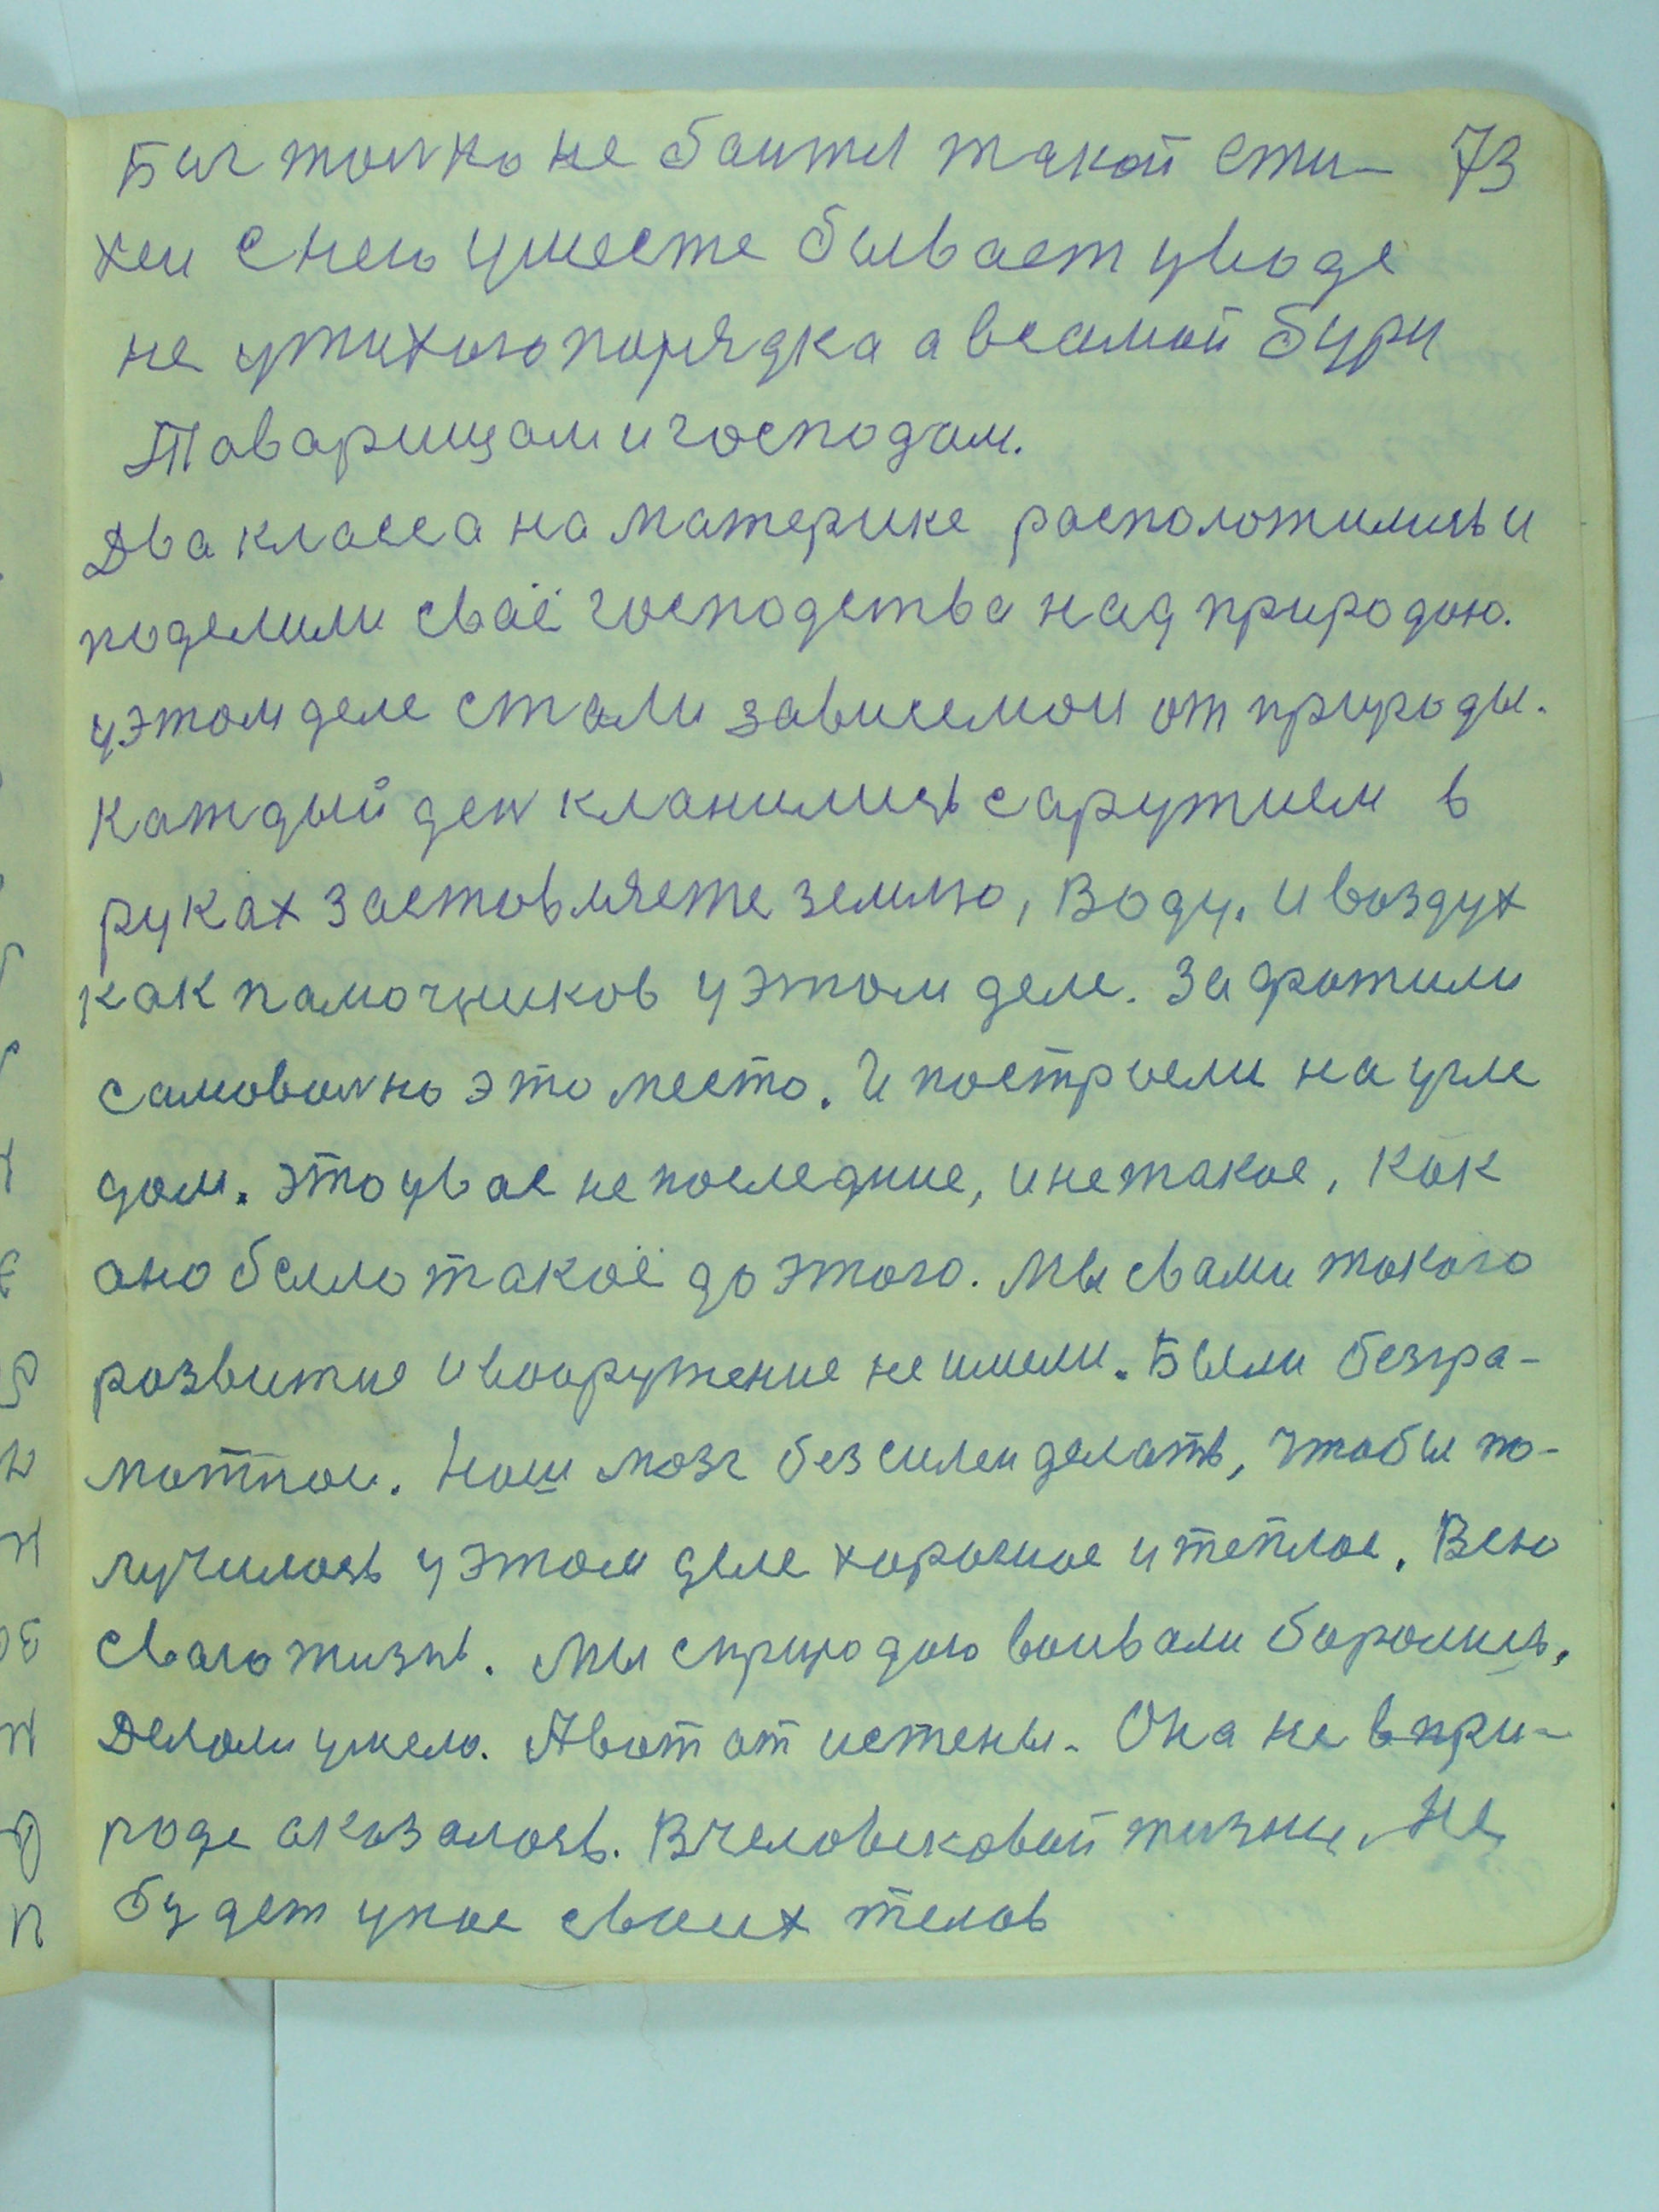 Бич толко не баится такой сти- 73
хеи с нею уместе бывает уводе
не утихого порядка а всамой бури
Таварищам и господам.
Два класса на материке расположились и
поделили сваё господства над природою.
уэтом деле стали зависемои от природы.
Каждый ден кланились саружием в
руках заставляете землю, Воду. и воздух
как памочников уэтом деле. За фатили
самоволно это место. И построели на угле
дом. Это увас не последние, и не такое, как
оно было такоё до этого. Мы свами такого
развитие и вооружение не имели. Были безгра-
мотнои. Наш мозг безсилен делать, чтобы по-
лучилось уэтом деле хорошое и теплое. Всю
сваю жизнь. Мы сприродою воивали боролись.
Делали умело. А вот от истены. Она не в при-
роде аказалось. Вчеловековай жизни. Не
будет унас своих телов